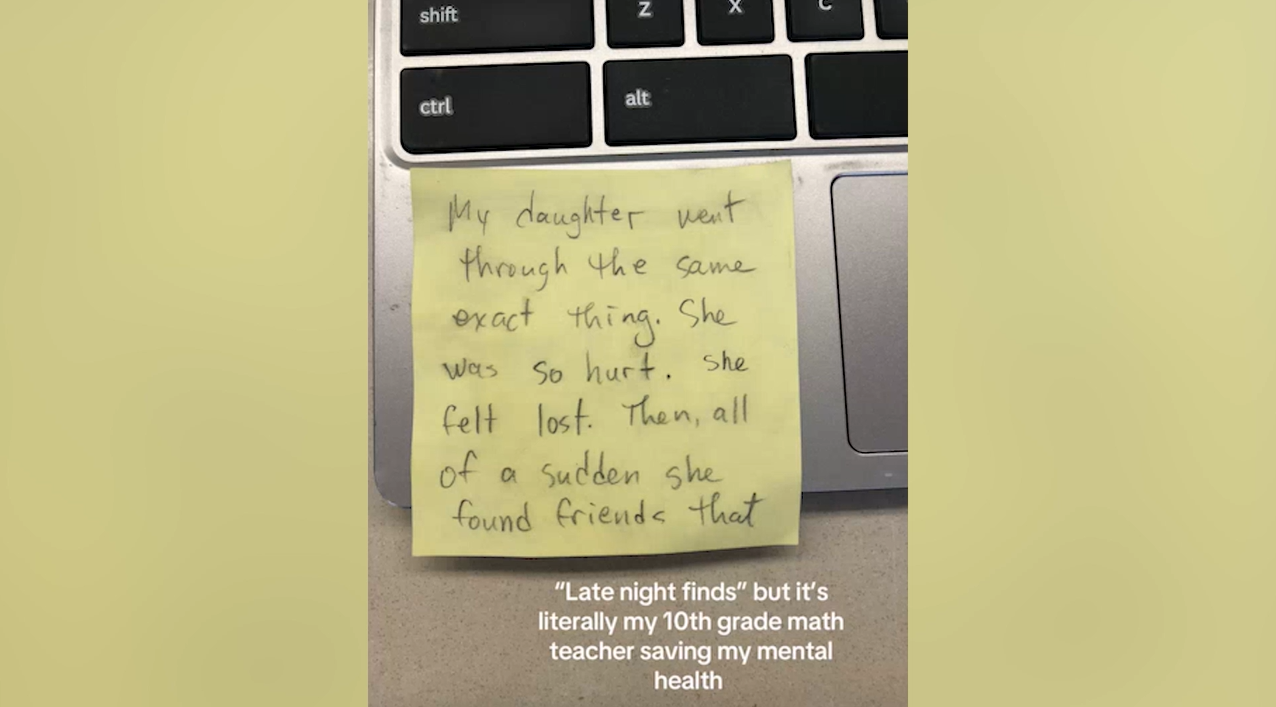 shift
Z
X
C
ctrl
alt
My daughter went
through the same
exact thing. She
was so hurt. She
felt lost. Then, all
of a sudden she
found friends that
“Late night finds” but it’s
literally my 10th grade math
teacher saving my mental
health